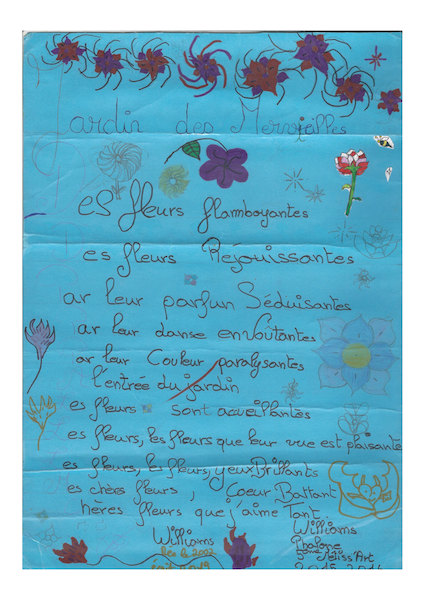 ardin des Merveilles
es fleurs flamboyantes
es fleurs Réjouissantes
ar leur parfun Séduisantes
ar leur danse envoûtantes
ar leur Couleur paralysantes
l'entrée du jardin
es fleurs sont accueillantes
es fleurs, les fleurs que leur vue est plaisante
es fleurs, les fleurs, yeux Brillants
es chères fleurs, Coeur Battant
hères fleurs que j'aime Tant.
Williams
Williams
2002
3ème
2015-2016